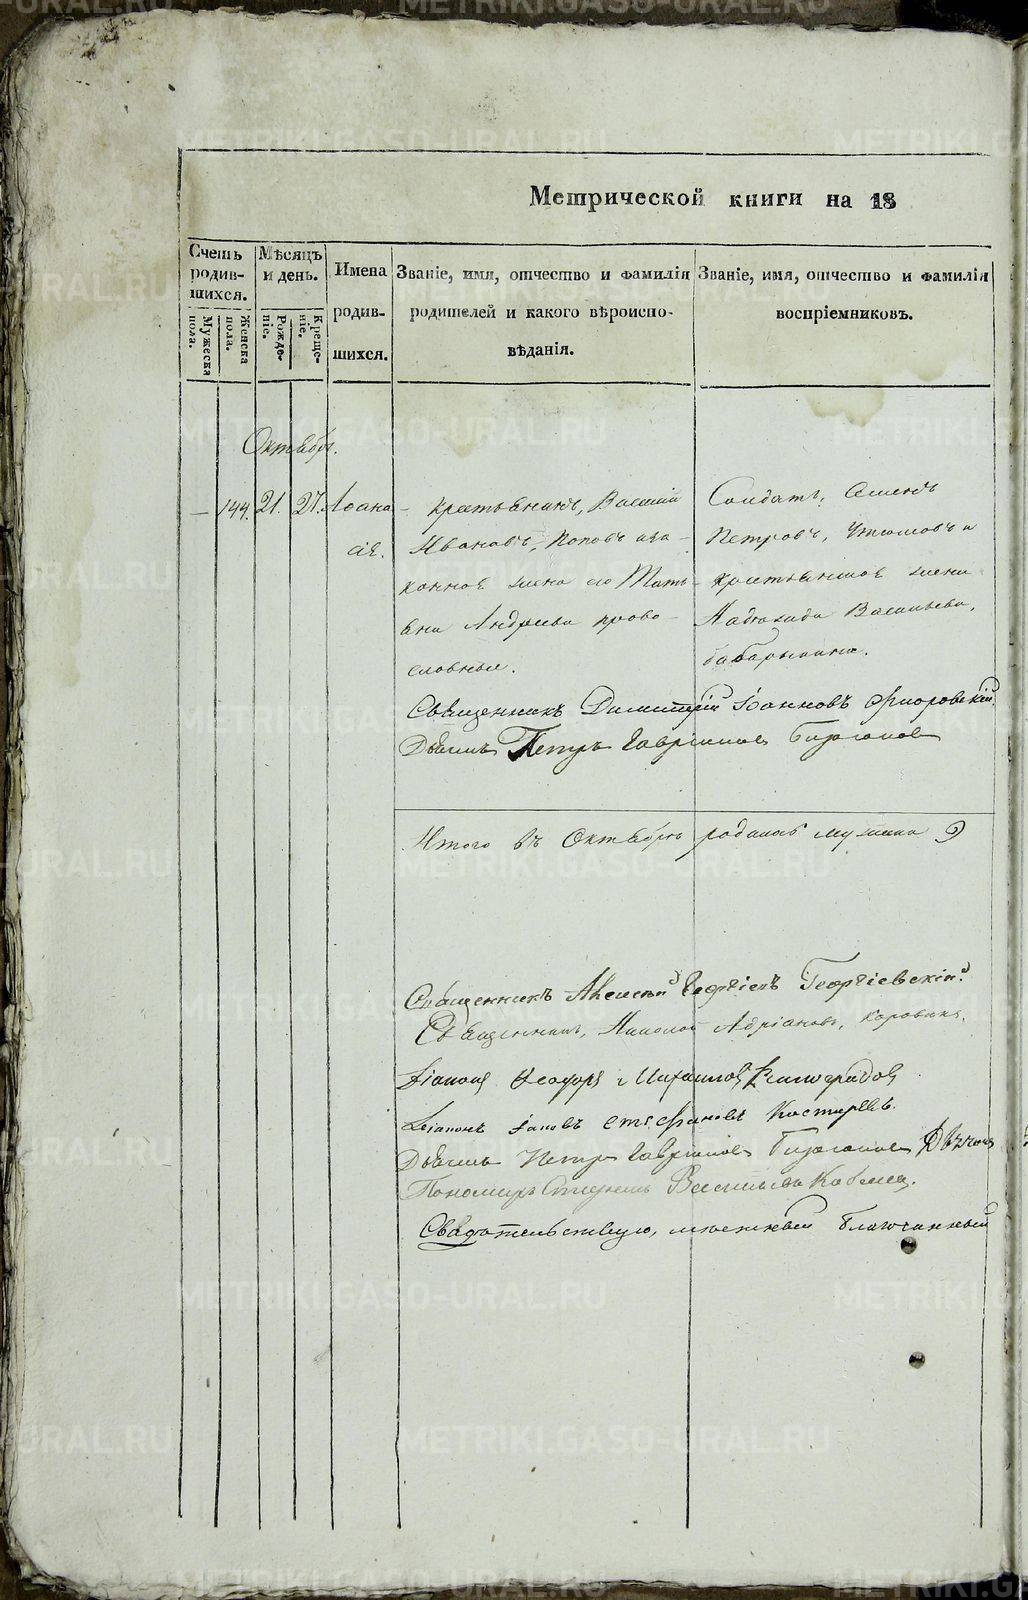 Метрической книги на 18
Счетъ родив-шихся.
Мужеска пола.
Женска пола.
Мѣсяцъ и день.
Рожде-ніе.
Креще-ніе.
Имена родив-шихся.
Званіе, имя, отчество и фамилія
родителей и какого вѣроиспо-
вѣданія.
Званіе, имя, отчество и фамилія
воспріемниковъ.
Октябрь.
— 144. 21. 27. Аѳана
сія.
крестьянинъ, Василій
Ивановъ, Поповъ и за-
конная жена его Татья-
на Андреева право-
славные.
Солдатъ, Семенъ
Петровъ, и
крестьянская жена
Надежда Васильева,
Священникъ Димитрій Іоанновъ Флоровскій
Дьячекъ Петръ Гавріиловъ
Итого въ Октябрѣ родилось мужска 9
Священникъ Алексѣй Георгіевъ Георгіевскій
Священникъ, Николай Адріановъ, Коровинъ.
Діаконъ Ѳеодоръ Михаиловъ Виноградовъ
Діаконъ Іаковъ Стефановъ Костыревъ.
Дьячекъ Петръ Гавріиловъ Дьячекъ
Пономарь Васильевъ
Свидѣтельствую, мѣстный Благочинный
METRIKI.GASO-URAL.RU